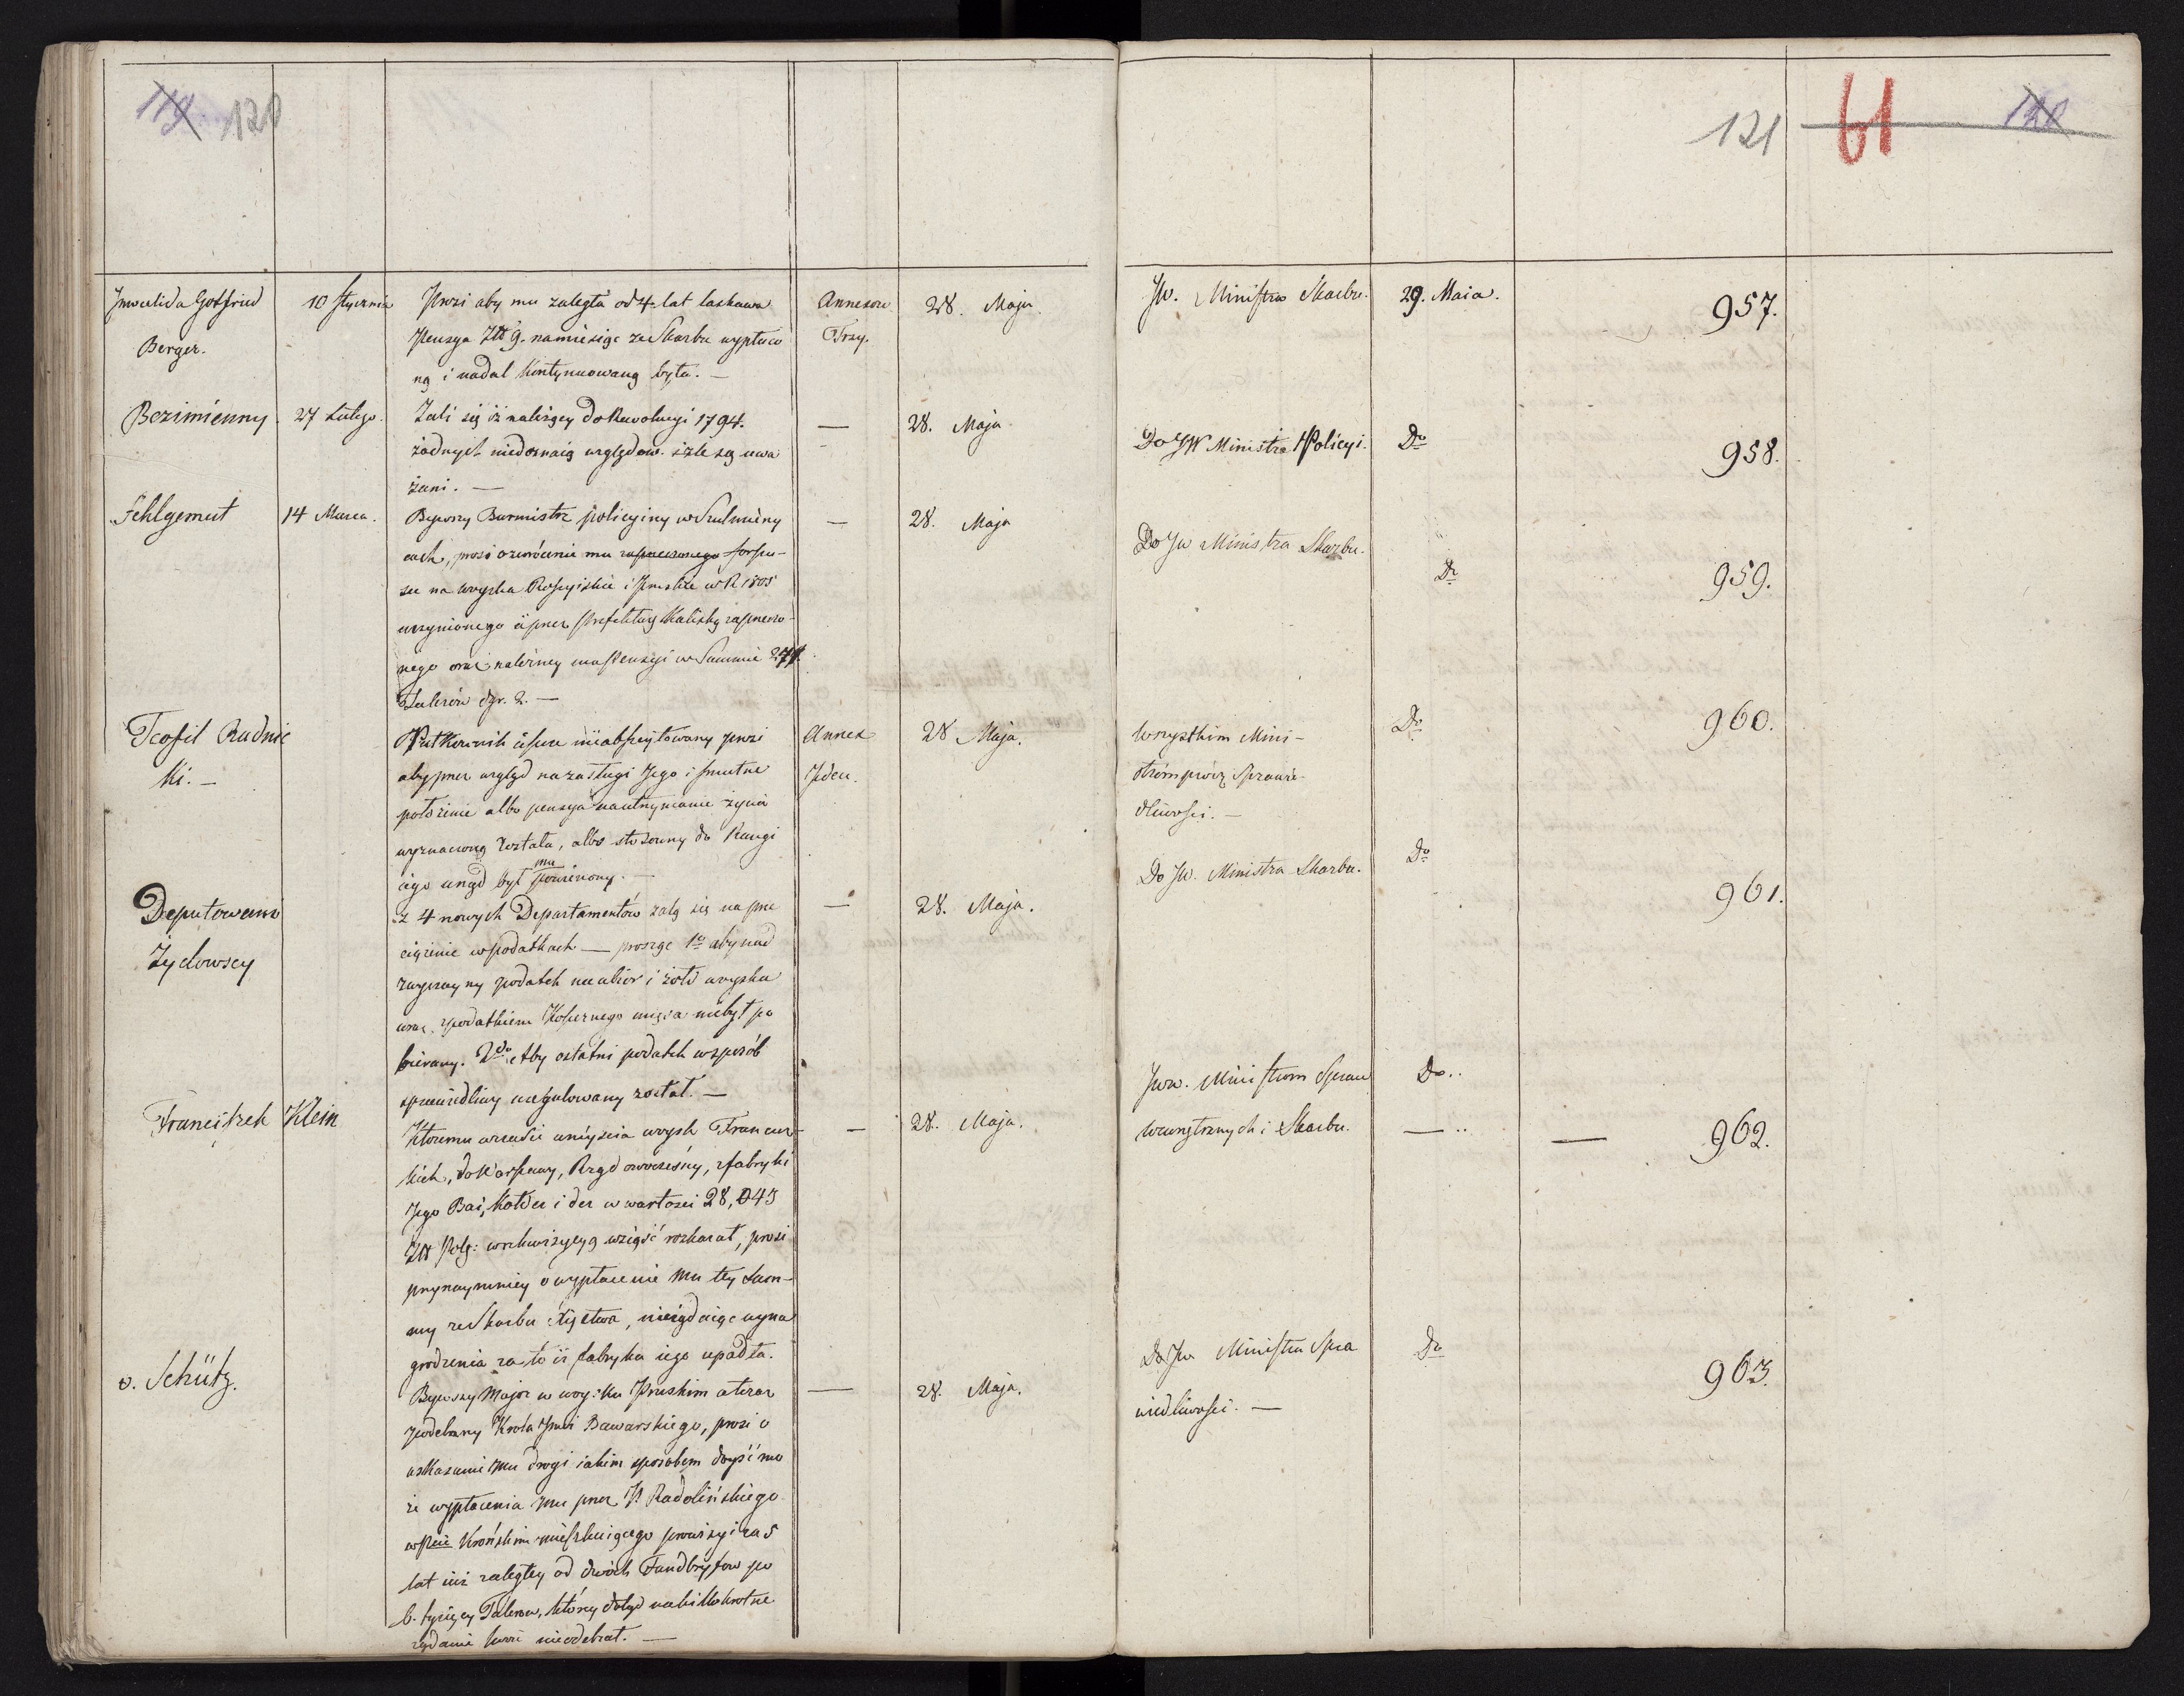 119. 120
121 61 120
Inwalida Gotfried
Berger.
10 Stycznia
Prosi aby mu zaległa od 4. lat laskawa
Pensya Złł 9. na miesiąc ze Skarbu wypłaco
ną i nadal kontynuowaną była. —
Annexow
Trzy.
28. Maja.
JW. Ministra Skarbu.
29. Maia.
957.
Bezimienny.
27 Lutego.
Zali się iż należący do Rewolucyi 1794.
żadnych niedoznaią względow. i źle są uwa
żani. —
—
28. Maja.
Do JW Ministra Policyi.
Do
958.
Fehlgemut
14 Marca.
Bywszy Burmistrz policyiny w Sulmierzy
cach, prosi o zwrócenie mu zapreczonego forszu-
su na woyska Rossyiskie i Pruskie w R 1805
uczynionego i przez Prefekturę Kaliską zaprzeczo-
nego oraz należney mu Pensyi w Summie
Talerów dgr. 2. —
—
28. Maja
Do JW Ministra Skarbu.
Do
959.
Teofil Rudnic
ki. —
Pułkownik ieszcze nieabszeytowany prosi
aby przez wzgląd na zasługi Jego i smutne
położenie albo pensya na utrzymanie życia
wyznaczoną została, albo stosowny do Rangi
iego urząd był mu powierzony. —
Annex
Jeden.
28 Maja.
Wszystkim Mini-
strom prócz Sprawie-
dliwosci. —
Do
960.
Deputowani
Żydowscy
z 4 nowych Departamentów żalą się na prze
ciążenie w podatkach — prosząc 1o aby nad
zwyczayny podatek na ubior i żołd woyska
wraz z podatkiem Koszernego mięsa niebył po
bierany. 2do Aby ostatni podatek w sposób
sprawiedliwy uregulowany został. —
—
28. Maja.
Do JW. Ministra Skarbu.
Do
961.
Franciszek Klein
Ktoremu w czasie weyscia woysk Francuz-
kich, do Warszawy, Rząd owoczesny, z fabryki
Jego Bai, Kołder i der w wartości 28,043
Złł Polg: w rekwizycyą wziąść rozkazał, prosi
przynaymniey o wypłacenie mu tey Sum-
my ze Skarbu Xięstwa, nieżądaiąc wyna
grodzenia za to iż fabryka iego upadła.
—
28. Maja.
JWW. Ministrom Spraw
Wewnętrznych i Skarbu.
Do..
— ..
—
962.
v. Schütz.
Bywszy Major w woysku Pruskim a teraz
Podkomorzy Krola Jmci Bawarskiego, prosi o
wskazanie mu drogi iakim sposobem doyść mo
że wypłacenia mu przez P. Radolińskiego
w Pcie Krońskim mieszkaiącego prowizyi za 5
lat iuż zaległey od dwóch Fandbryfow po
6. tysięcy Talerow, którey dotąd na kilkokrotne
żądanie swoie nieodebrał. —
—
28. Maja.
Do JW Ministra Spra
wiedliwosci. —
Do
963.